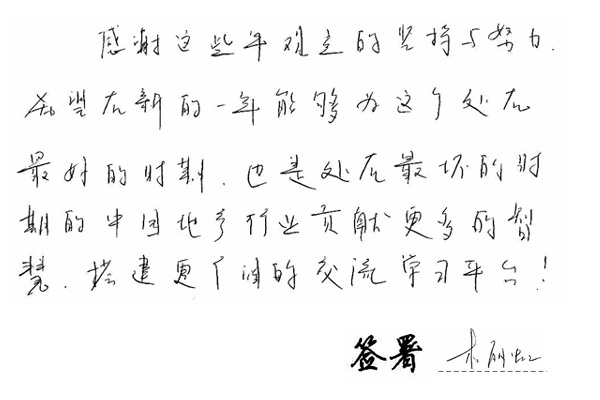 感谢这些年观点的坚持与努力.
希望在新的一年能够为这个处在
最好的时期、也是处在最坏的时
期的中国地产行业贡献更多的智
慧、搭建更广阔的交流学习平台!
签署 朱丽虹